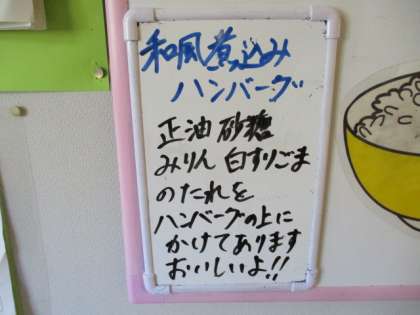 和風煮込み
ハンバーグ
正油 砂糖
みりん 白すりごま
のたれを
ハンバーグの上に
かけてあります
おいしいよ!!